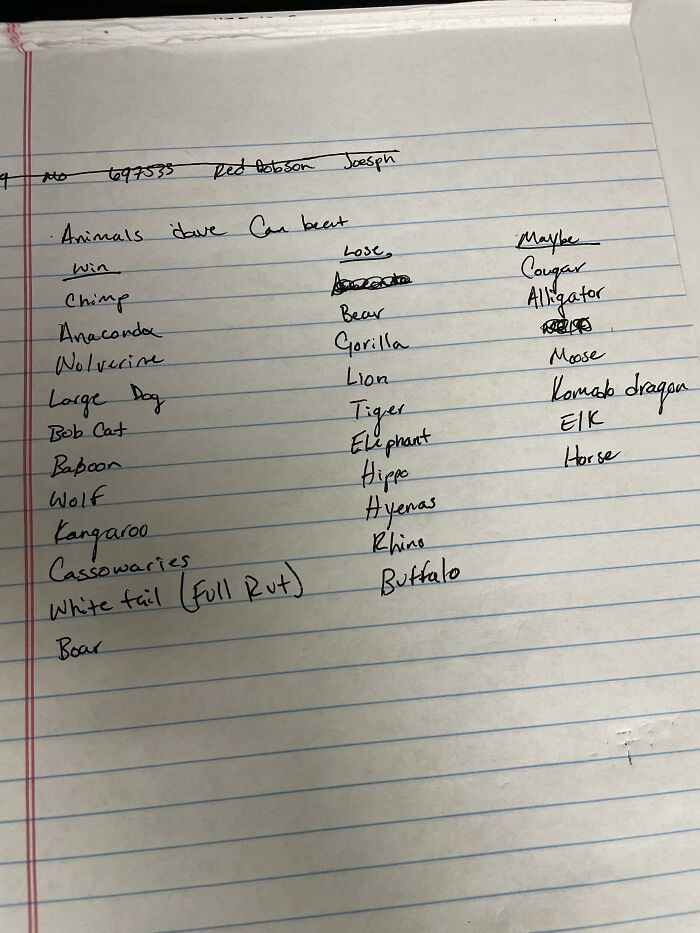 9 Mo 697533 Red Dobson Joesph
Animals Dave Can beat
Win
Chimp
Anaconda
Wolverine
Large Dog
Bob Cat
Baboon
Wolf
Kangaroo
Cassowaries
White tail (Full Rut)
Boar
Lose
Anaconda
Bear
Gorilla
Lion
Tiger
Elephant
Hippo
Hyenas
Rhino
Buffalo
Maybe
Cougar
Alligator
Moose
Komodo dragon
Elk
Horse